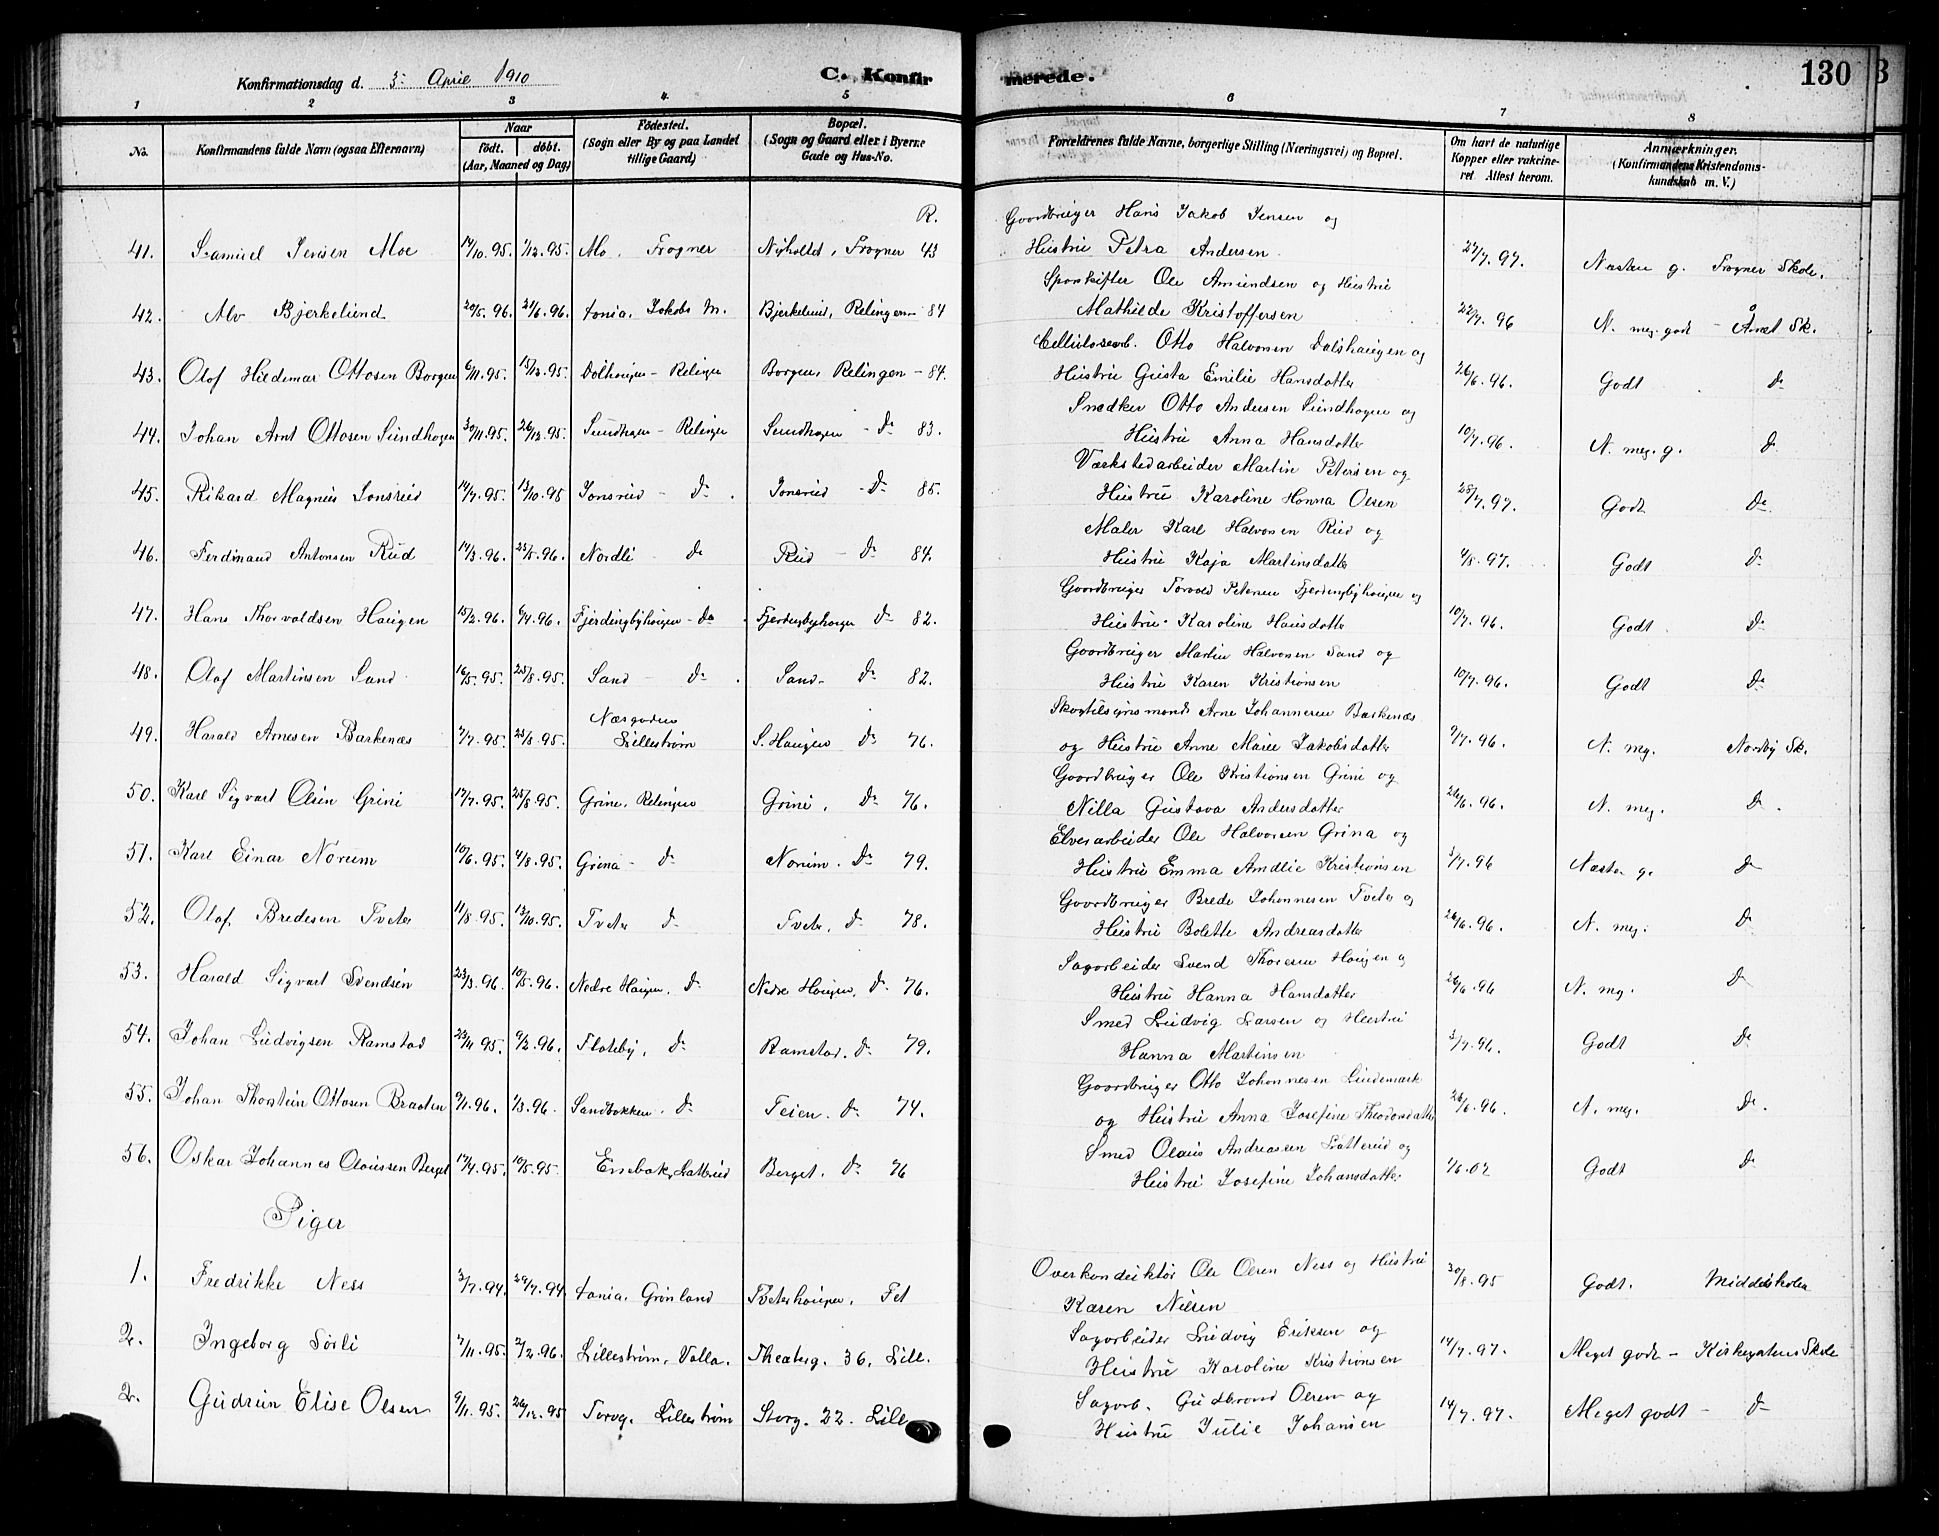 Konfirmationsdag d. 3. April 1910
C. Konfirmerede. 130
1 2 3 4 5 6 7 8
No. Konfirmandens fulde Navn (ogsaa Efternavn) Naar Født. døbt. (Aar, Maaned og Dag) Fødested. (Sogn eller By og paa Landet tillige Gaard) Bopæl. (Sogn og Gaard eller i Byerne Gade og Hus-No. Forældrenes fulde Navne, borgerlige Stilling (Næringsvei) og Bopæl. Om havt de naturlige Kopper eller vakcineret Attest herom. Anmærkninger. (Konfirmandens Kristendomskundskab m. V.)
R. Gaardbruger Hans Jakob Jensen og
41. Samuel Jensen Moe 14/10.95. 1/12.95. Mo, Frogner Nyholdt, Frogner 43 Hustru Petra Andersen 27/7.97. Næsten g. Frogner Skole.
Sporskifter Ole Amundsen og Hustru
42. Alv Bjerkelund 20/5.96. 21/6.96. Jakobs M. Bjerkelund, Relingen - 84 Mathilde Kristoffersen 22/7.96 N. meg. godt - Åmot Sk.
Cellulosearb. Otto Halvorsen Dalshaugen og
43. Olof Hildemar Ottosen Borgen 6/11.95. 15/12.95. Dolhaugen - Relingen Borgen, Relingen - 84. Hustru Gusta Emilie Hansdatter 26/6.96. Godt do
Snedker Otto Andersen Sundhagen og
44. Johan Arnt Ottosen Sundhagen 30/11.95. 26/12.95. Sundhagen - Relingen Sundhagen - do 83. Hustru Anna Hansdatter 10/7.96. N. meg. g. do
Værkstedarbeider Martin Petersen og
45. Rikard Magnus Jonsrud 14/7.95. 13/10.95 Jonsrud - do. Jonsrud - do 85. Hustru Karoline Hanna Olsen 28/7.97. Godt do
Maler Karl Halvorsen Rud og
46. Ferdinand Antonsen Rud 14/3.96. 25/5.96. Nordli - do Rud - do 84. Hustru Kaja Martinsdatter 4/8.97. Godt do
Gaardbruger Torvald Petersen Fjerdingbyhaugen og
47. Hans Thorvaldsen Haugen 15/2.96. 6/4.96. Fjerdingbyhaugen - do. Fjerdingbyhaugen do 82. Hustru Karoline Hansdatter 10/7.96. Godt. do
Gaardbruger Martin Halvorsen Sand og
48. Olaf Martinsen Sand 16/5.95. 25/8.95. Sand - do. Sand - do 82. Hustru Karen Kristiansen 10/7.96. Godt do
Skogtilsynsmand Arne Johannesen Barkenæs
49. Harald Arnesen Barkenæs 7/7.95. 25/8.95. Lillestrøm S. Haugen do 76. og Hustru Anne Marie Jakobsdatter 9/7.96. N. meg. Nordby Sk.
Gaardbruger Ole Kristiansen Grini og
50. Karl Sigvart Olsen Grini 17/7.95. 25/8.95. Grini, Relingen Grini, do 76. Nilla Gustava Andersdatter 26/6.96. N. meg. do.
Elvearbeider Ole Halvorsen Grina og
51. Karl Einar Norum 10/6.95. 4/8.95. Grina - do Norum. do 79. Hustru Emma Amdlie Kristiansen 3/7.96 Næsten g. do
Gaardbruger Brede Johannesen Tveter og
52. Olaf Bredesen Tveter 11/8.95. 13/10.95. Tveter do Tveter, do 78. Hustru Bolette Andreasdatter 26/6.96. N. meg. do
Sagarbeider Svend Thoresen Haugen og
53. Harald Sigvart Svendsen 23/3.96. 10/5.96. Nedre Haugen, do Nedre Haugen, do 76. Hustru Hanna Hansdatter 26/6.96 N. meg. do
Smed Ludvig Larsen og Hustru
54. Johan Ludvigsen Ramstad 22/11.95. 9/2.96. Flateby, do Ramstad, do 79. Hanna Martinsen 3/7.96. Godt do
Gaardbruger Otto Johannesen Lindemark
55. Johan Thorstein Ottosen Braaten 9/1.96. 1/3.96. Sandbakken. do Teien. do 74. og Hustru Anna Josefine Theodorsdatter 26/6.96. N. meg. do.
Smed Olaus Andreassen Slatterud og
56. Oskar Johannes Olaussen Berget 17/4.95. 10/5.95. Enebak, Slattrud Berget. do 76 Hustru Josefine Johansdatter 1/6.02 Godt do
Piger
1. Fredrikke Ness 3/7.94. 29/7.94. Grønland Tveterhaugen, Fet Overkonduktør Ole Olsen Ness og Hustru 30/8.95 Godt. Middelskolen
Karen Nilsen
2. Ingeborg Sørli 7/11.95. 2/2.96. Lillestrøm, Volla. Theaterg. 36, Lill. Sagarbeider Ludvig Eriksen og 14/7.97. Meget godt - Kirkegatens Skole
Hustru Karoline Kristiansen
2. Gudrun Elise Olsen 9/11.95. 26/12.95 Torvg. Lillestrøm Storg. 22. Lill. Sagarb. Gudbrand Olsen og 14/7.97. Meget godt - do
Hustru Julie Johansen